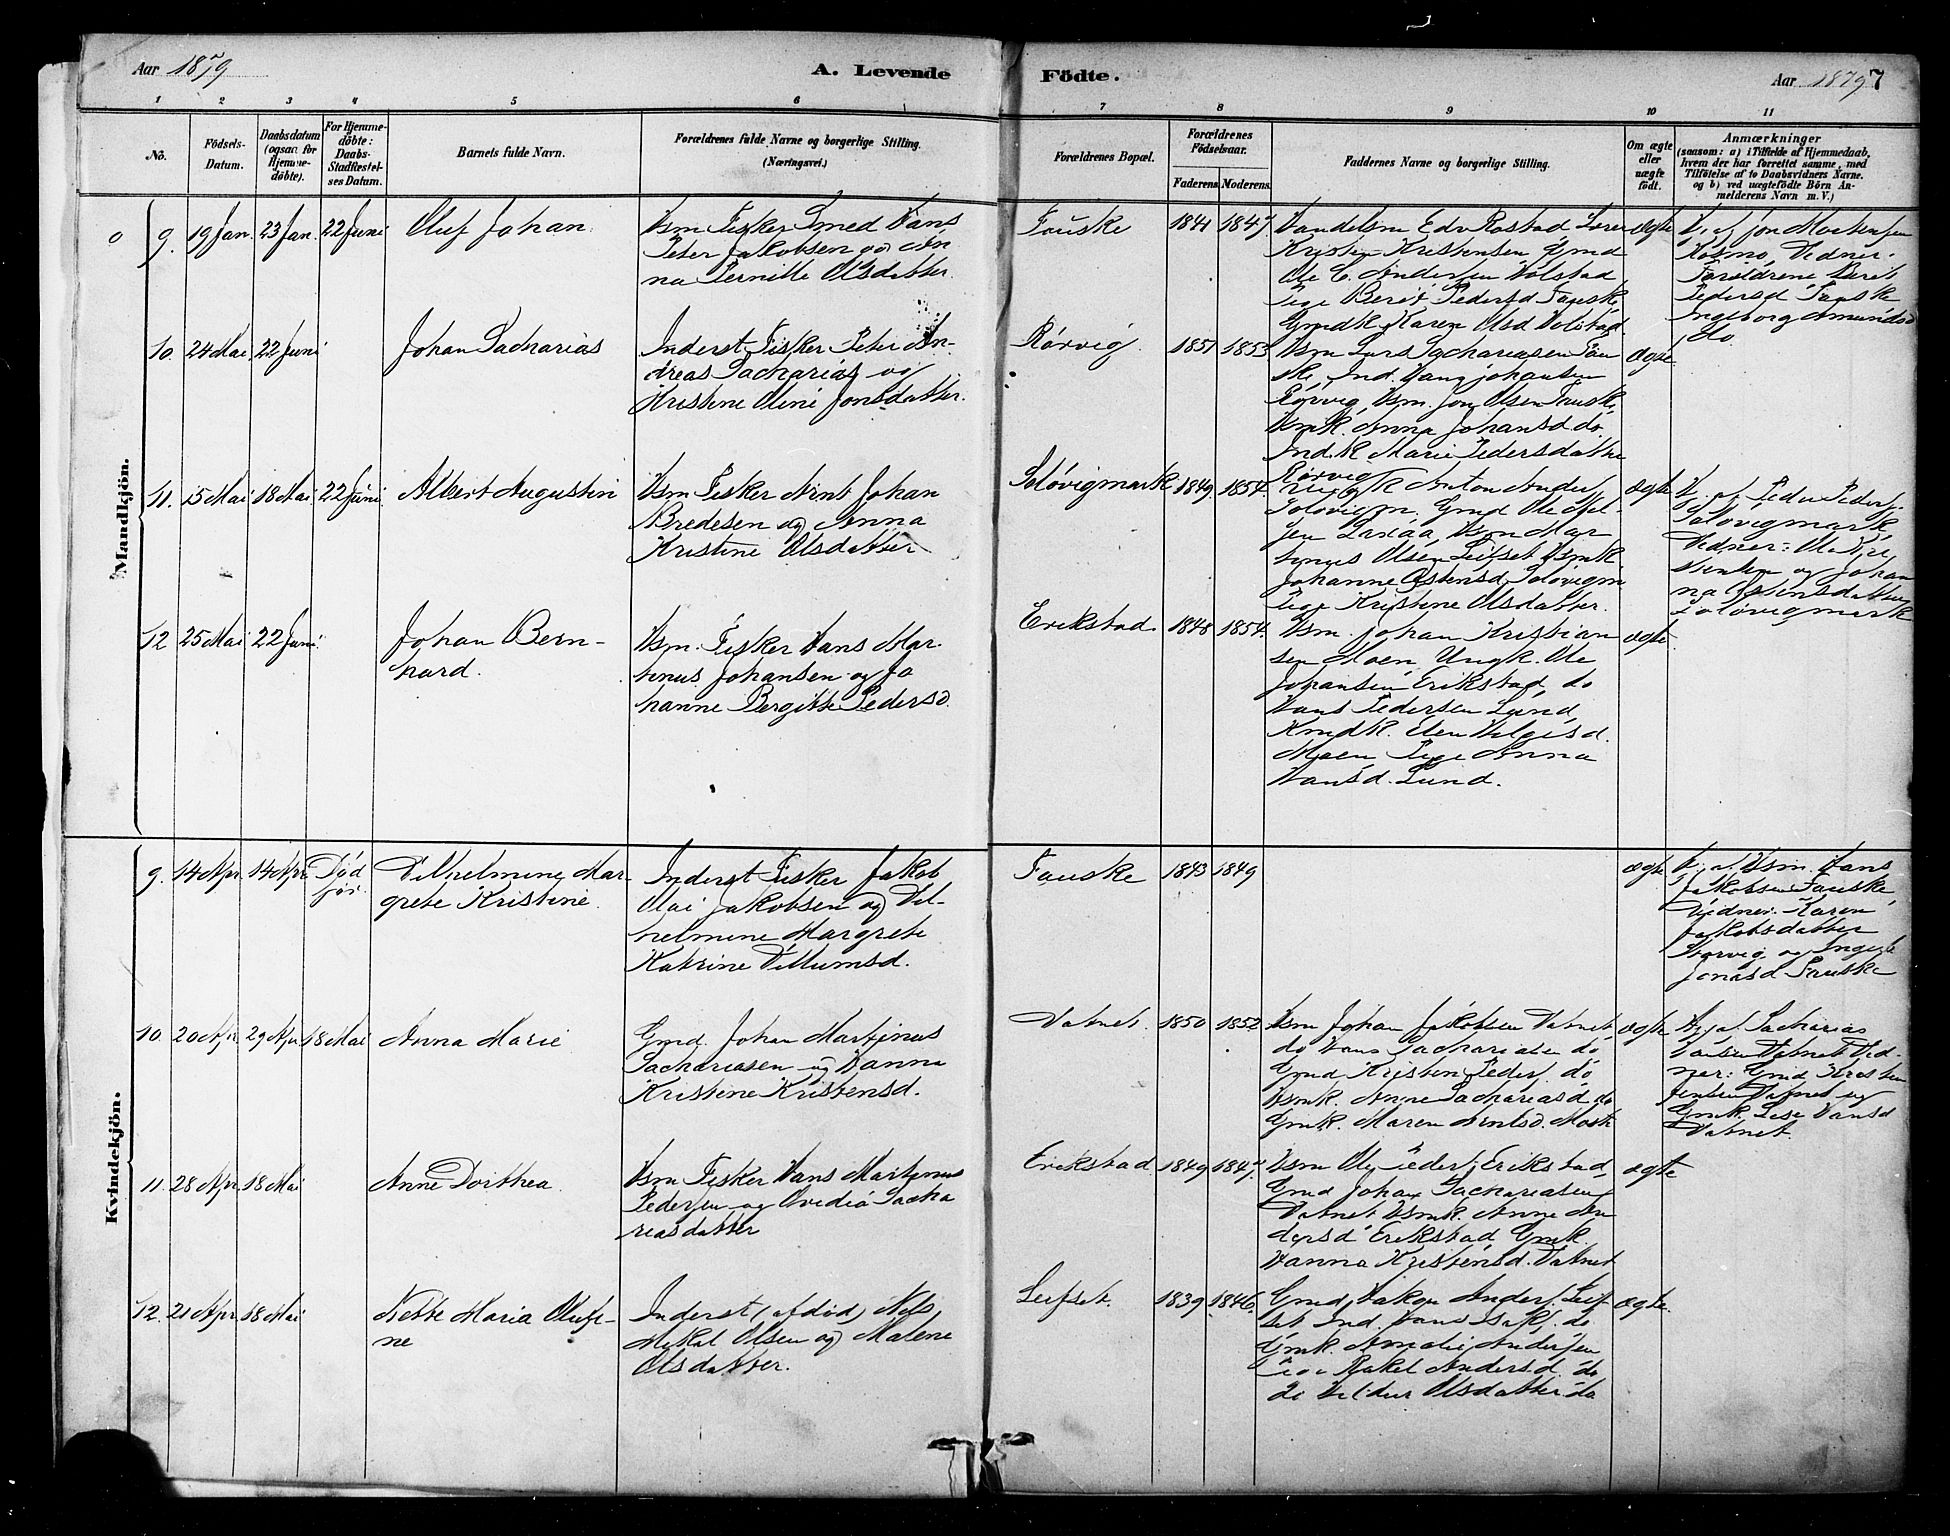 Aar 1879
A. Levende
Födte.
Aar 1879 7
1 2 3 4 5 6 7 8 9 10 11
No.
Födsels-Datum.
Daabsdatum (ogsaa for Hjemme-döbte).
For Hjemme-döbte: Daabs-Stadfæstel-ses Datum.
Barnets fulde Navn.
Forældrenes fulde Navne og borgerlige Stilling.
(Næringsvei.)
Forældrenes Bopæl.
Forældrenes Födselsaar.
Faderens. Moderens.
Faddernes Navne og borgerlige Stilling.
Om ægte eller uægte födt.
Anmærkninger
(saasom: a) i Tilfælde af Hjemmedaab,
hvem der har forrettet samme, med
Tilföielse af to Daabsvidners Navne.
og b) ved uægtefödte Börn An-
melderens Navn m. V.)
Mandkjön.
9. 19 Jan. 23 Jan. 22 Juni Oluf Johan
Hsm Fisker Smed Hans
Peter Jakobsen og
na Pernille Olsdatter.
Fauske 1841 1847
Handelsm Edv Rostad
Kristen Kristensen Gmd
Ole C. Andersen Holstad
Pige Berit Pedersd Fauske
Gmdk Karen Olsd Holstad
ægte
Kosmo, Vidner.
Forældrene Berit
Pedersd Fauske
Ingeborg Amundsd
do.
10. 24 Mai 22 Juni Johan Zacharias
Inderst Fisker Peter An-
dreas Zacharias. og
Kristine Oline Jonsdatter.
Rørvig. 1851 1853
Hsm Lars Zachariasen Fau
ske, Ind. Hans Johansen
Rørvig, Hsm. Jon Olsen Fauske,
Hsmk. Anna Johansd do
Ind.k Marie Pedersdatter
Rørvig
ægte
11. 15 Mai 18 Mai 22 Juni Albert Augustin
Hsm Fisker Arnt Johan
Bredesen og Anna
Kristine Olsdatter
Soløvigmark 1849 1854.
Ungk Anton Anders
Soløvigm. Gmd Ole
Hsm Mar
tinus Olsen Leifset Hsmk
Johanne Østensd Soløvigm
Pige Kristine Olsdatter.
ægte
H. af Peder Peders.
Soløvigmark
Vidner: Ole
og Johan
na Østensdatter
Soløvigmark
12 25 Mai 22 Juni Johan Bern-
hard.
Hsm. Fisker Hans Mar-
tinus Johansen og Jo
hanne Bergitte Pedersd.
Erikstad. 1848 1854.
Hsm. Johan Kristian
sen Moen Ungk. Ole
Johansen Erikstad, do
Hans Pedersen Lund,
Elen Helgesd.
Moen Pige Anna
Hansd. Lund.
ægte.
Kvindekjön.
9. 14 Apr. 14 Apr. Död
för.
Vilhelmine Mar-
grete Kristine.
Inderst Fisker Jakob
Olai Jakobsen og Vil-
helmine Margrete
Katrine Villumsd.
Fauske 1843 1849
ægte
H. af Hsm. Hans
Jakobsen Fauske,
Vidner: Karen
Jakobsdatter
og
Jonasd Fauske
10. 20 Apr 29 Apr 18 Mai Anna Marie
Gmd. Johan Martinus
Zachariasen og Hanna
Kristine Kristensd.
Vatnet. 1850 1852
Hsm Johan Jakobsen Vatnet,
do Hans Zachariasen do
Gmd Kristen Peders. do
Hsmk. Anne Zachariasd do
Gmk. Maren Arntsd.
ægte
H. af Zacharias
Hansen Vatnet Vid-
ner: Gmd Kristen
Jensen Vatnet og
Gmk. Lise Hansd
Vatnet.
11. 28 Apr 18 Mai Anne Dorthea
Hsm Fisker Hans Martinus
Pedersen og Ovedia Zacha
riasdatter
Erikstad 1849 1847.
Hsm Ole Peders. Erikstad,
Gmd Johan Zachariasen
Vatnet Hsmk. Anne An
dersd Erikstad Gmk.
Hanna Kristensd. Vatnet
ægte
12. 21 Apr 18 Mai Nette Maria Olufi-
ne
Inderst (afdöd) Nils
Mikal Olsen og Malene
Olsdatter.
Leifset. 1839 1846.
Gmd Anders. Leif-
set Ind. Hans Isaks. do
Gmk. Amalie Andersen
Pige Rakel Andersd. do
do Olsdatter do
ægte.